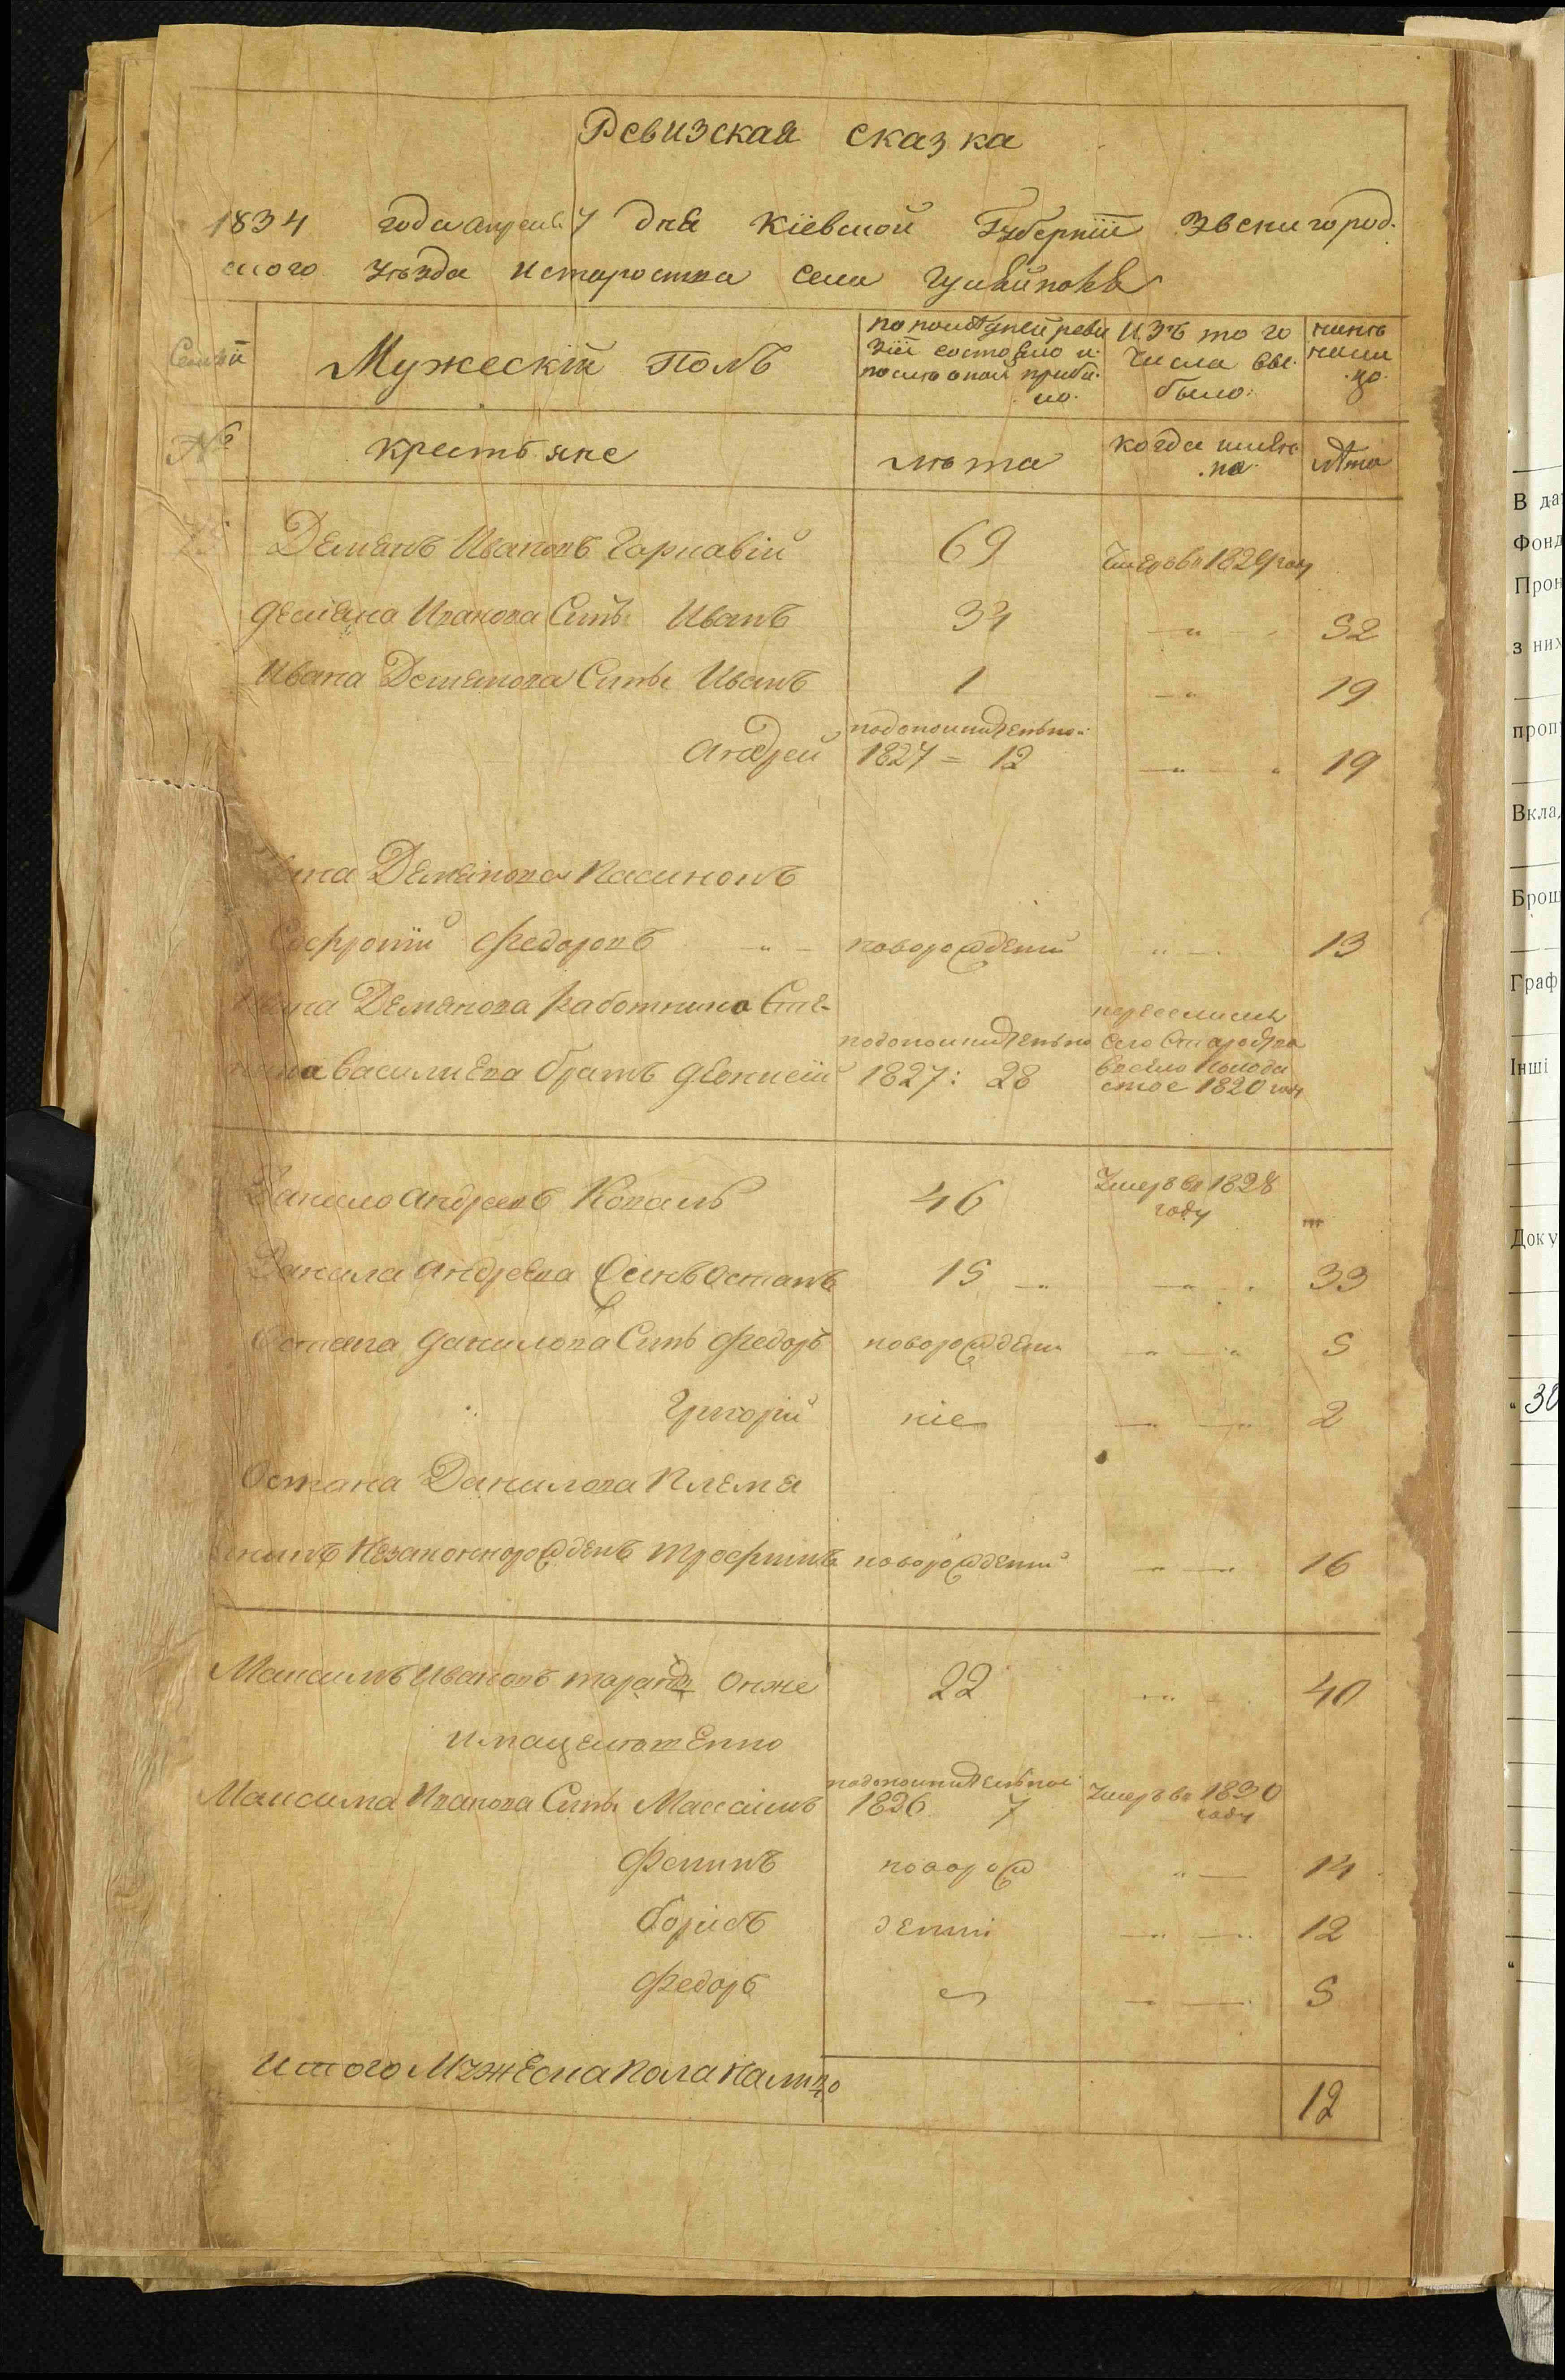 Ревизская сказка
1834 года апреля 7 дня Кіевской Губерніи Звенигород-
ского уезда и староства села Гусакова
Семьи
Мужескій Полъ
по последней реви
зіи состояло и
после оной прибы
ло
Изъ то го
числа вы-
было:
ныне
нали
цо
№
крестьяне
лета
когда имен
но
лета
Демянъ Ивановъ
69
умеръ въ 1829 году
Демяна Иванова Сынъ Иванъ
34
52
Ивана Демянова Сынъ Иванъ
1
19
Андрей
подополнительной
1827 = 12
19
Демянова Пасинокъ
Софроній Федоровъ
новорожденій
13
Демянова работника Сте-
пана Василиева братъ Діонисій
подополнительно
1827: 28
село
1820 году
Данило Андреевъ Коваль
46
Умеръ въ 1828
году
Данила Андреева Синъ Остапъ
15
33
Остапа Данилова Синъ Федоръ
новорожден
5
Григорій
ніе
2
Остапа Данилова Племя
нникъ Незаконнорожденъ Трофимъ
новорожденій
16
Максимъ Ивановъ Онже
22
40
Максима Иванова Сынъ Максимъ
подополнительное
1826 7
Умеръ въ 1830
году
Филипъ
поворож
14
борисъ
денні
12
Федоръ
5
Итого Мужеска пола налицо
12
В да
Фонд
Прон
з них
проп
Вкла
Брош
Граф
Інші
Доку